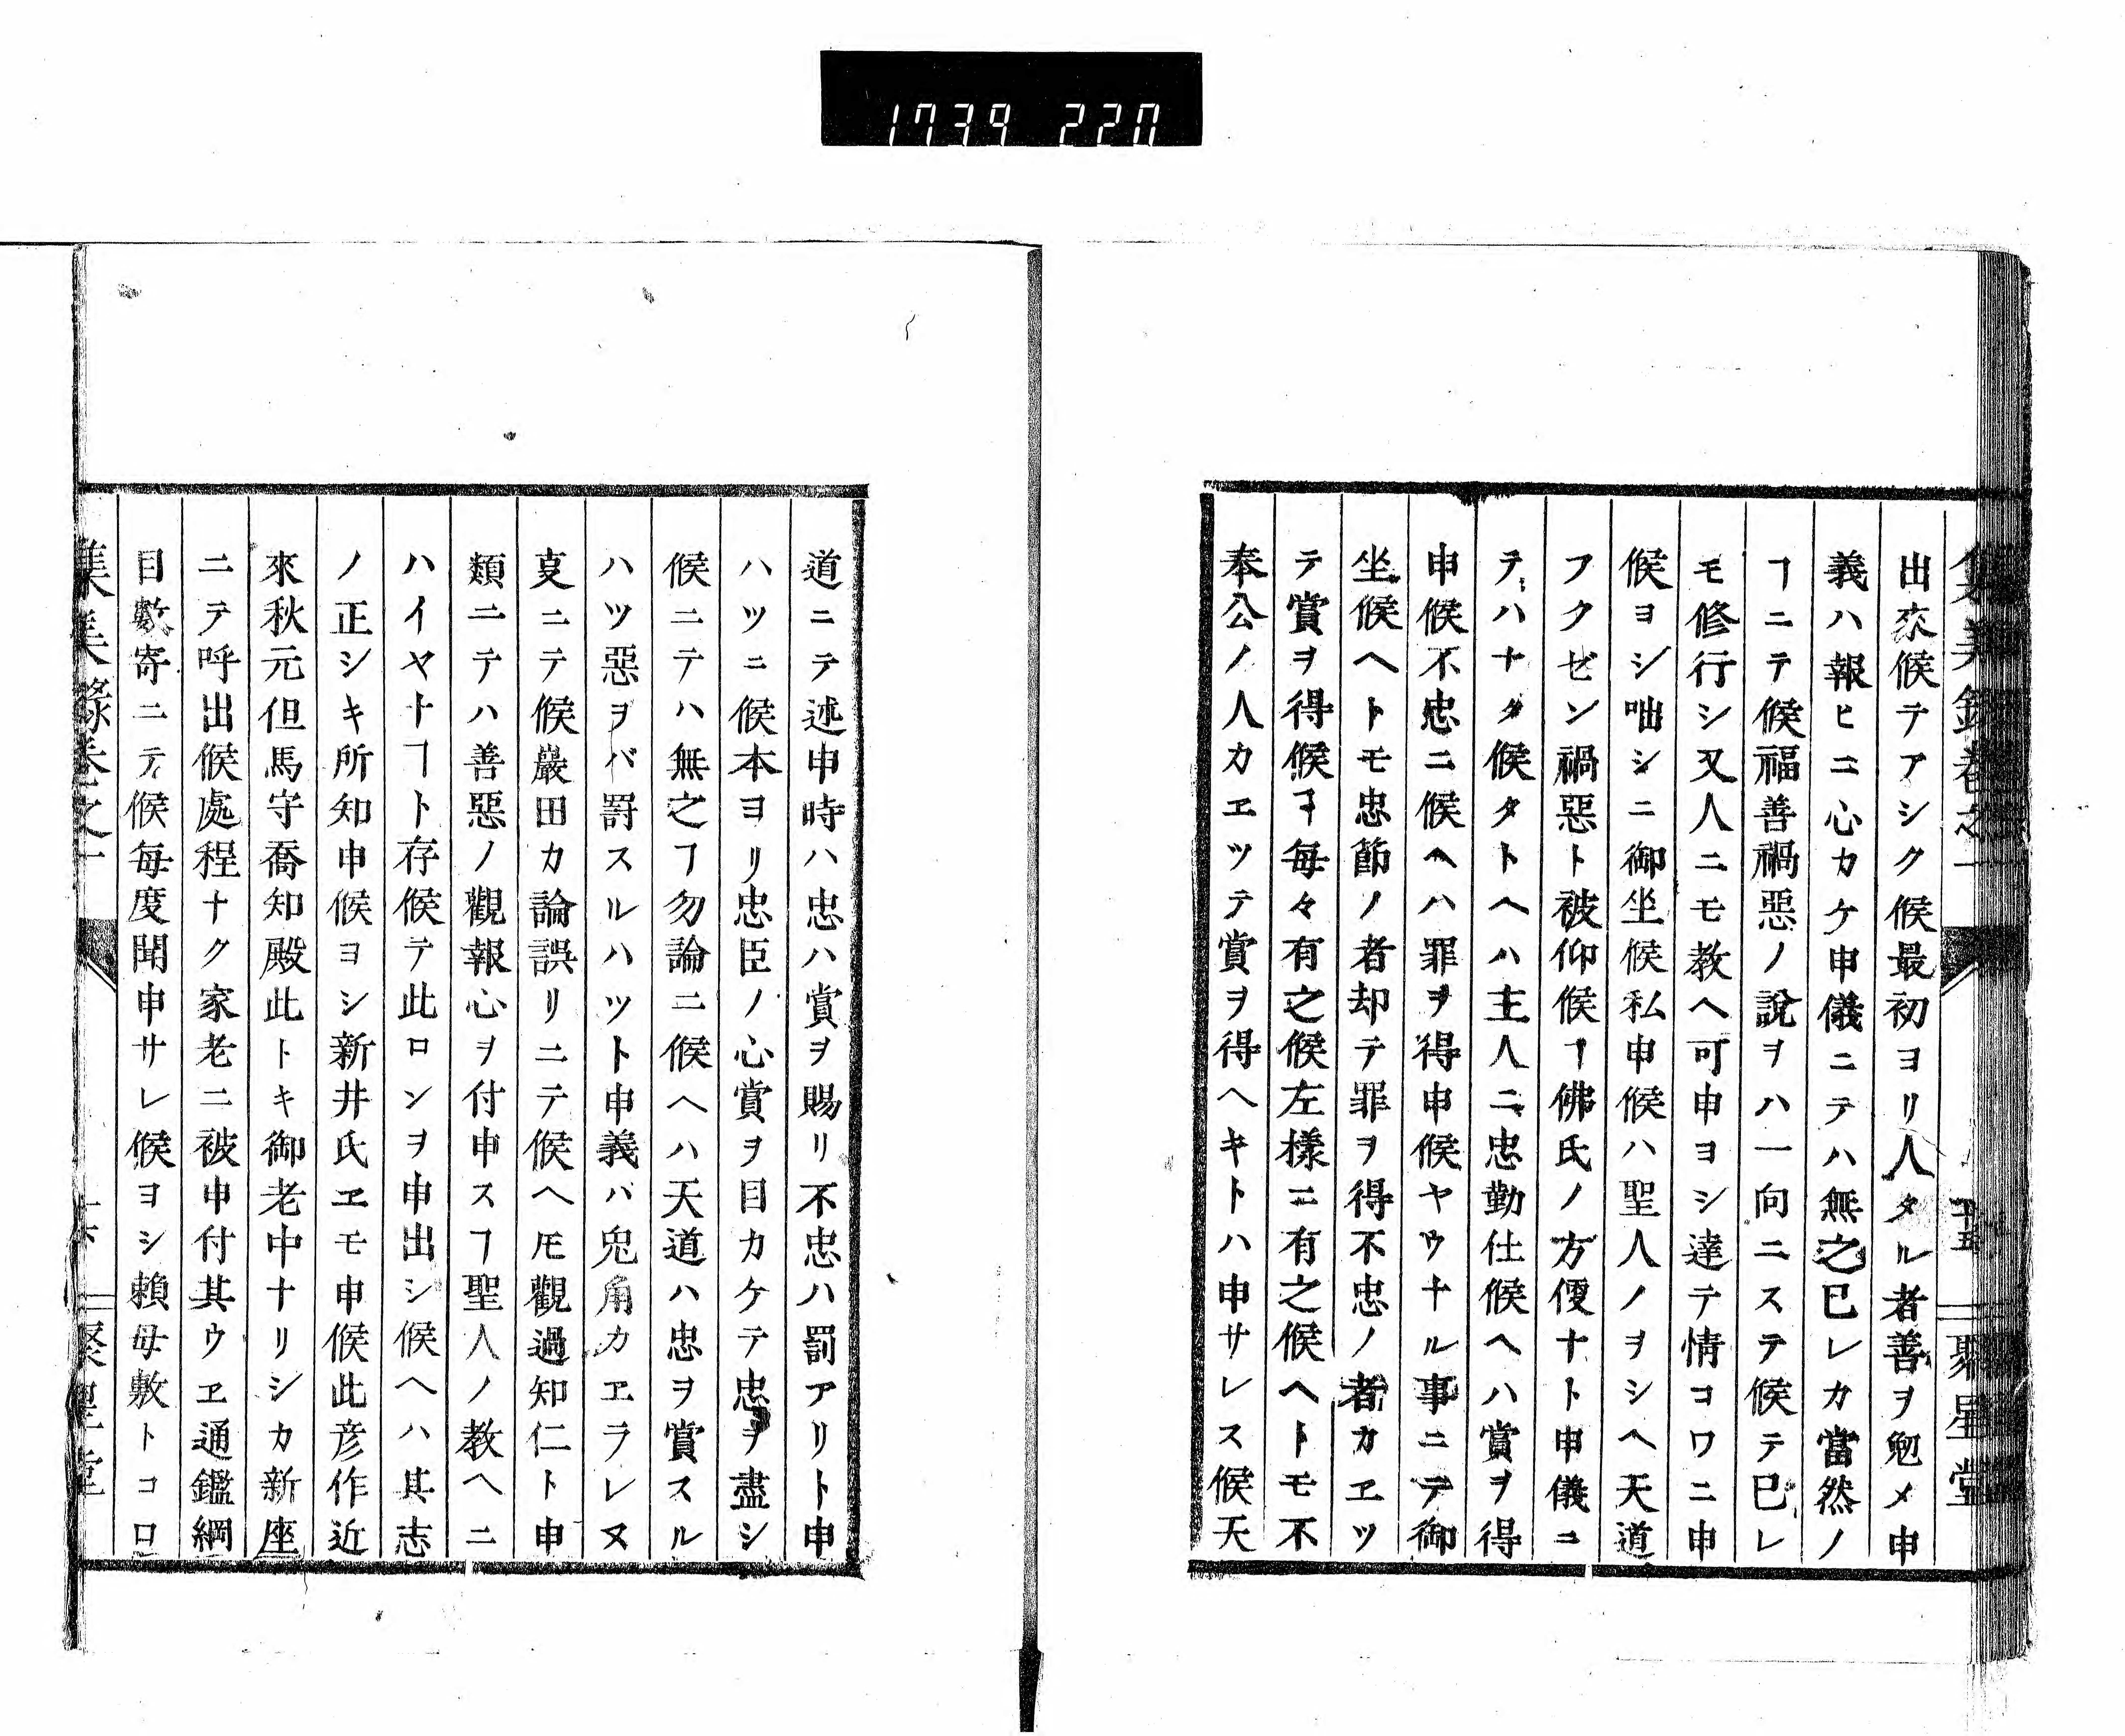 1739 220
出來候テアシク候最初ヨリ人タル者善ヲ勉メ申
義ハ報ヒニ心カケ申儀ニテハ無之已レカ當然ノ
ヿニテ候福善禍惡ノ說ヲハ一向ニステ候テ已レ
モ修行シ又人ニモ教ヘ可申ヨシ達テ情コワニ申
候ヨシ咄シニ御坐候私申候ハ聖人ノヲシヘ天道
フクゼン禍惡ト被仰候ヿ佛氏ノ方便ナト申儀ニ
テハナク候タトヘハ主人ニ忠勤仕候ヘハ賞ヲ得
申候不忠ニ候ヘハ罪ヲ得申候ヤウナル事ニテ御
坐候ヘトモ忠節ノ者却テ罪ヲ得不忠ノ者カエツ
テ賞ヲ得候ヿ每々有之候左樣ニ有之候ヘトモ不
奉公ノ人カエツテ賞ヲ得ヘキトハ申サレス候天
道ニテ述申時ハ忠ハ賞ヲ賜リ不忠ハ罰アリト申
ハツニ候本ヨリ忠臣ノ心賞ヲ目カケテ忠ヲ盡シ
候ニテハ無之ヿ勿論ニ候ヘハ天道ハ忠ヲ賞スル
ハツ惡ヲバ罸スルハツト申義バ兎角カエラレヌ
㕝ニテ候嚴田カ論誤リニテ候ヘ𪜈觀過知仁ト申
類ニテハ善惡ノ觀報心ヲ付申スヿ聖人ノ教ヘニ
ハイヤナヿト存候テ此ロンヲ申出シ候ヘハ其志
ノ正シキ所知申候ヨシ新井氏エモ申候此彥作近
來秋元但馬守喬知殿此トキ御老中ナリシカ新座
ニテ呼出候處程ナク家老ニ被申付其ウエ通鑑綱
目數寄ニテ候每度聞申サレ候ヨシ賴母敷トコロ